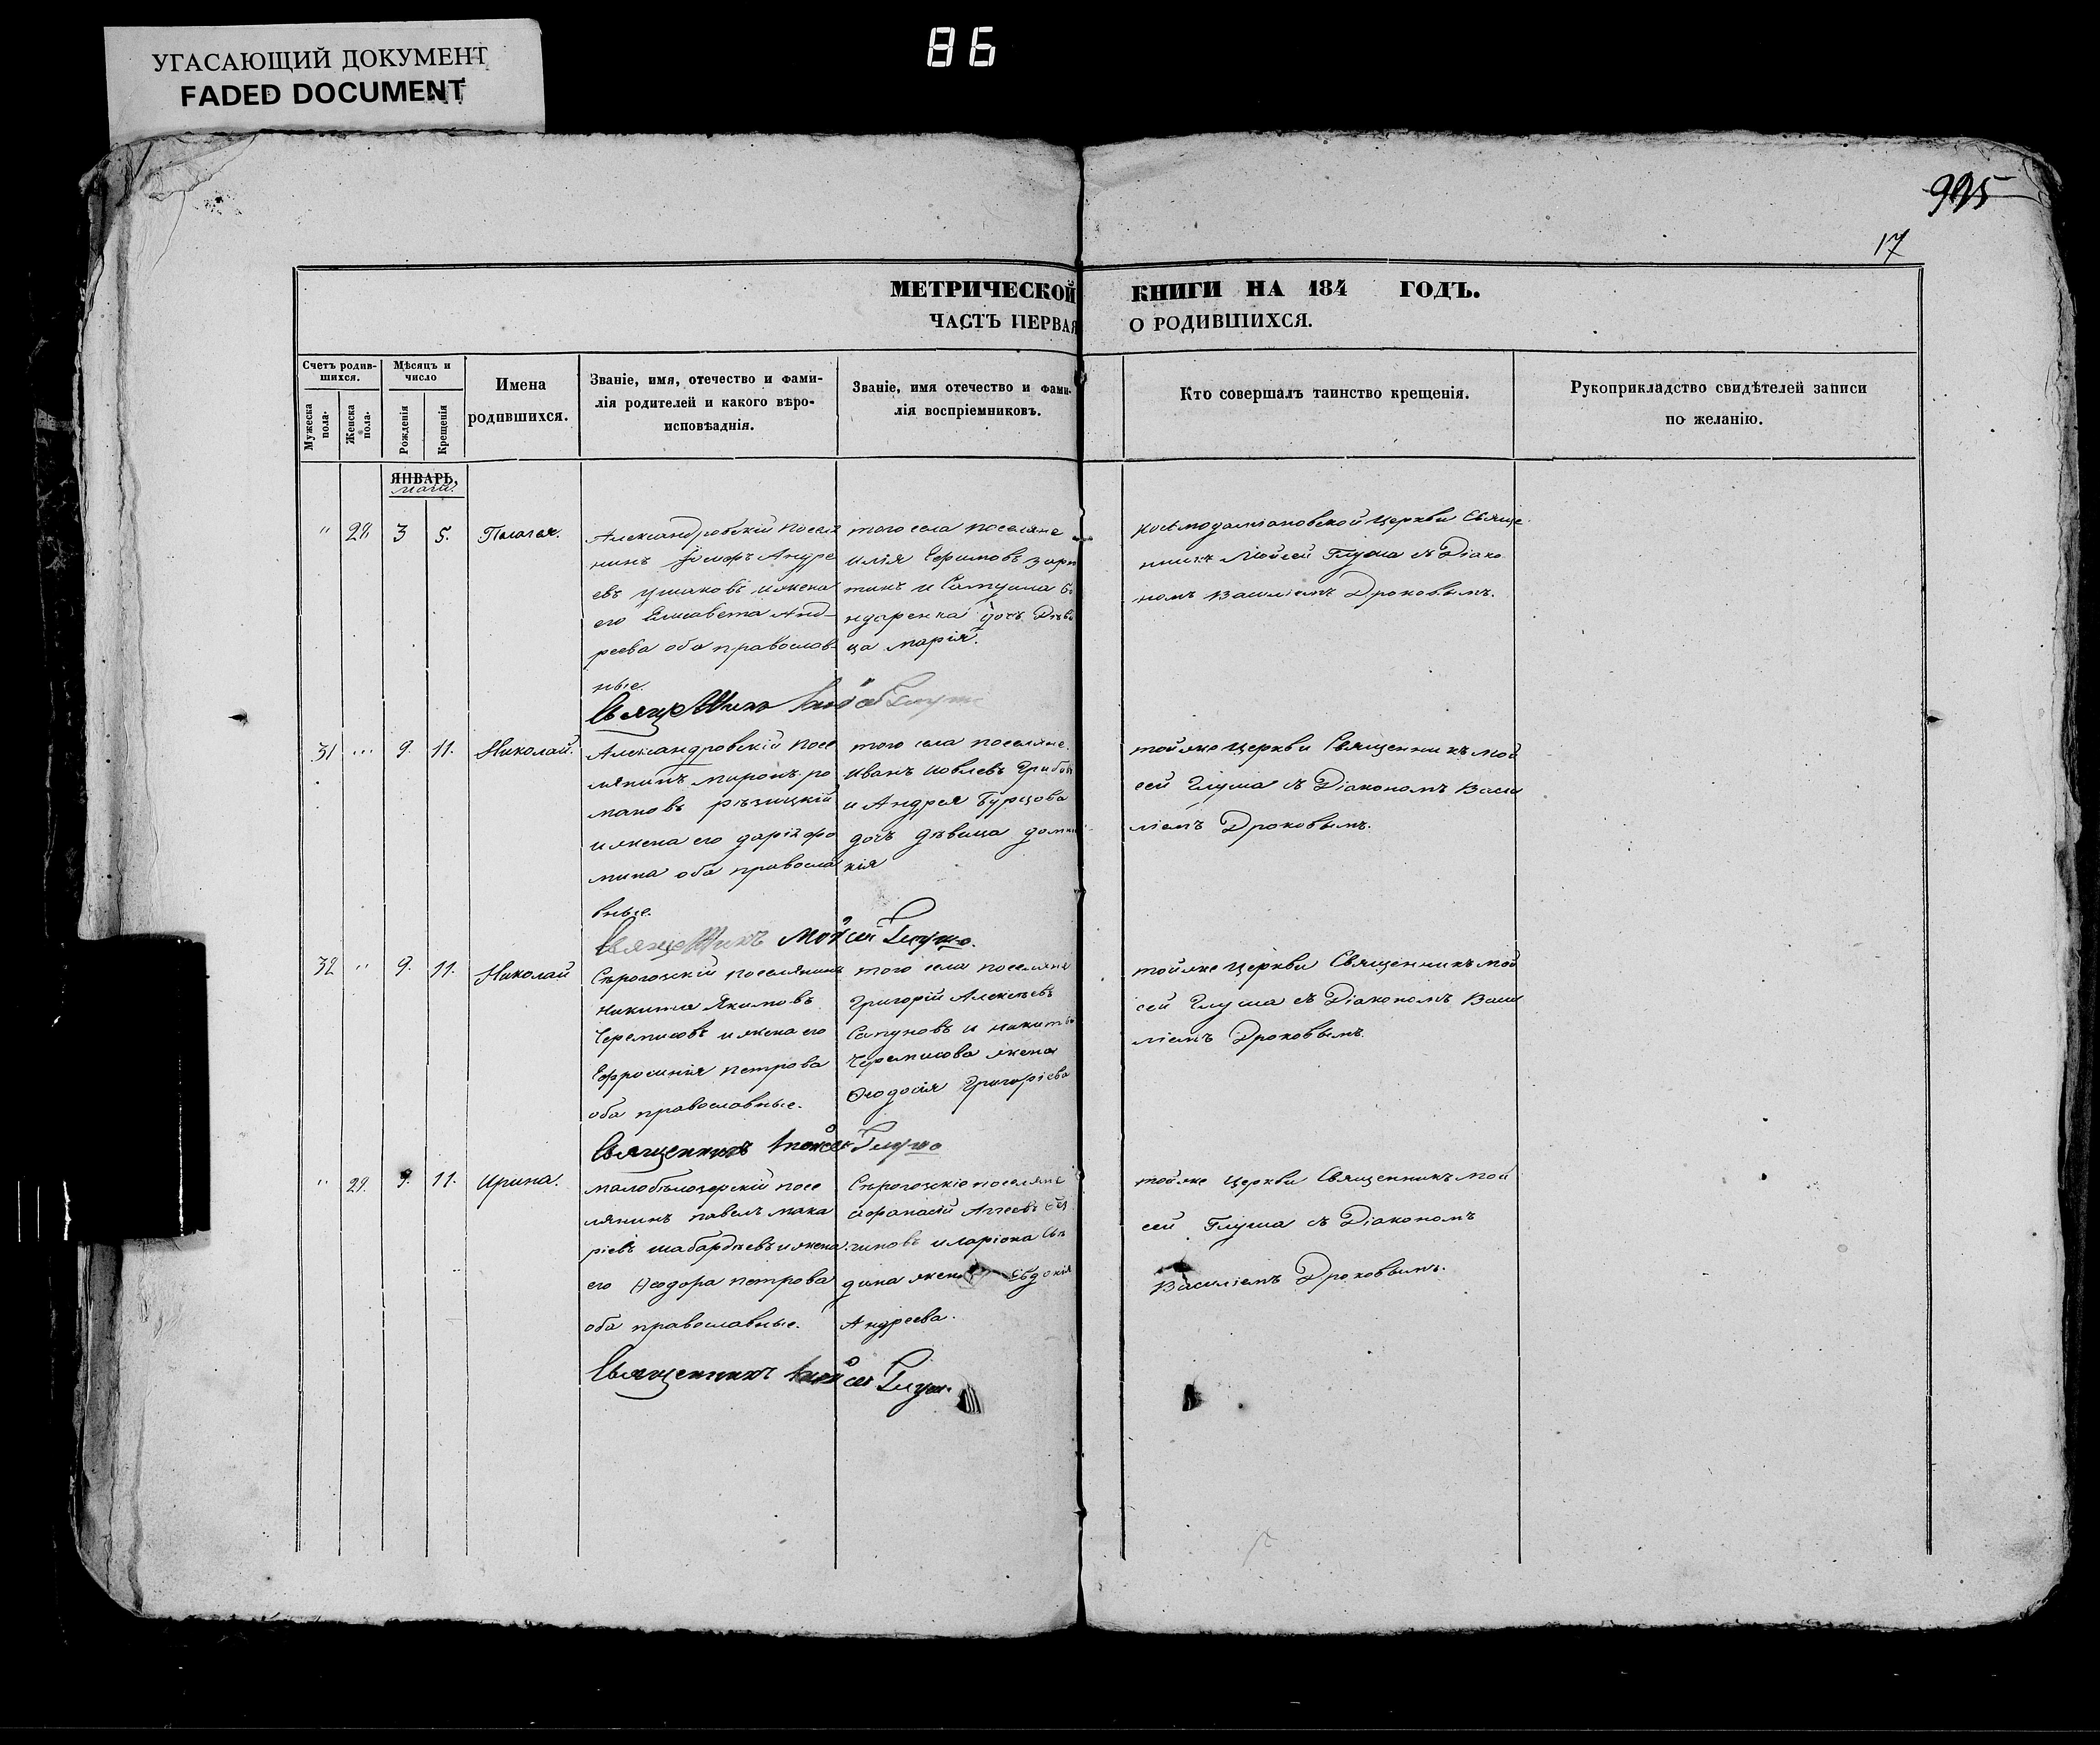 86
УГАСАЮЩИЙ ДОКУМЕНТ
FADED DOCUMENT
995
17
МЕТРИЧЕСКОЙ КНИГИ НА 184 ГОДЪ.
ЧАСТЬ ПЕРВАЯ О РОДИВШИХСЯ.
Счетъ родив-
шихся.
Мужеска
пола.
Женска
пола.
Мѣсяцъ и
число
Рожденія
Крещенія
Имена
родившихся.
Званіе, имя, отечество и фами-
лія родителей и какого вѣро-
исповѣданія.
Званіе, имя отечество и фами-
лія воспріемниковъ.
Кто совершалъ таинство крещенія.
Рукоприкладство свидѣтелей записи
по желанію.
ЯНВАРЬ,
маій.
" 28 3 5. Пелагея.
Александровскій поселя
нинъ Андре
евъ Ушаковъ и жена
его Елисавета Анд-
реева оба православ-
ные.
того села поселяне
Илія Ефимовъ
и Самуила Бо
ндаренка дочь Дѣви
ца Марія.
Космодаміановской Церкви Свяще
нникъ Мойсей Глума съ Діако
номъ Василіемъ Дроковымъ.
Священникъ Мойсей Глума
31 ... 9. 11. Николай.
Александровскій посе
лянинъ Миронъ Ро
мановъ Рѣзицкій
и жена его Дарія Фо
мина оба правосла
вные.
того села поселяне
Иванъ Иовлевъ
и Андрея Бурцова
дочь дѣвица Домни
кія
той же Церкви Священникъ Мой
сей Глума съ Діакономъ Васи
ліемъ Дроковымъ.
Священникъ Мойсей Глума.
32 " 9. 11. Николай
Сѣрогозскій поселянинъ
Никита Якимовъ
Черемисовъ и жена его
Ефросинія Петрова
оба православные.
того села поселяне
Григорій Алексѣевъ
Сапуновъ и Никиты
Черемисова жена
Ѳеодосія Григоріева
той же Церкви Священникъ Мой
сей Глума съ Діакономъ Васи
ліемъ Дроковымъ.
Священникъ Мойсей Глума
" 29. 9. 11. Ирина.
Малобѣлозерскій посе
лянинъ Павелъ Мака
ріевъ Шабардѣевъ и жена
его Ѳеодора Петрова
оба православные.
Сѣрогозскіе поселяне
Афанасій Аггеевъ
и Ларіона
дина жена Евдокія
Андреева.
той же Церкви Священникъ Мой
сей Глума съ Діакономъ
Василіемъ Дроковымъ.
Священникъ Мойсей Глума.